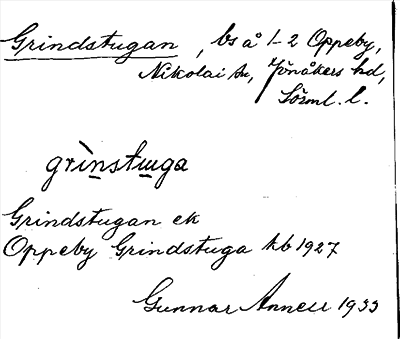 Grindstugan, bs å 1-2 Oppeby,
Nikolai sn, Jönåkers hd,
Sörml. l.
grìnstɯga
Grindstugan ek
Oppeby Grindstuga kb 1927
Gunnar Annell 1933